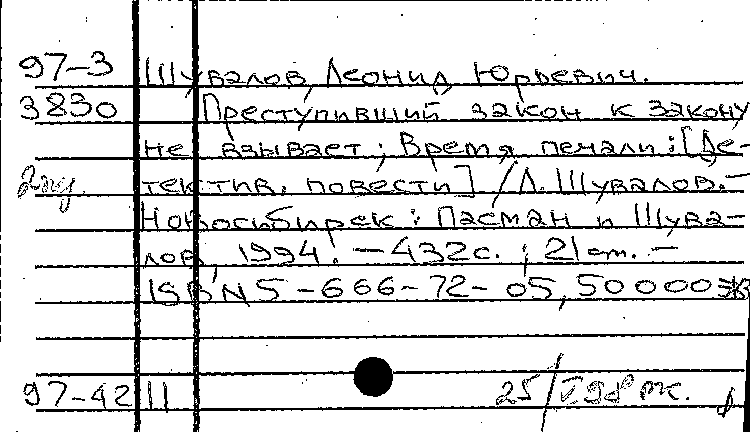 97-3 Шувалов, Леонид Юрьевич.
3830 Преступивший закон к закону
не взывает; Время печали: [Де-
2эку. тектив. повести] / Л. Шувалов. —
Новосибирск: Пасман и Шува-
лов, 1994. — 432с. ; 21 см. —
ISBN 5-666-72-05, 50000 экз
97-42 11 25/V 98